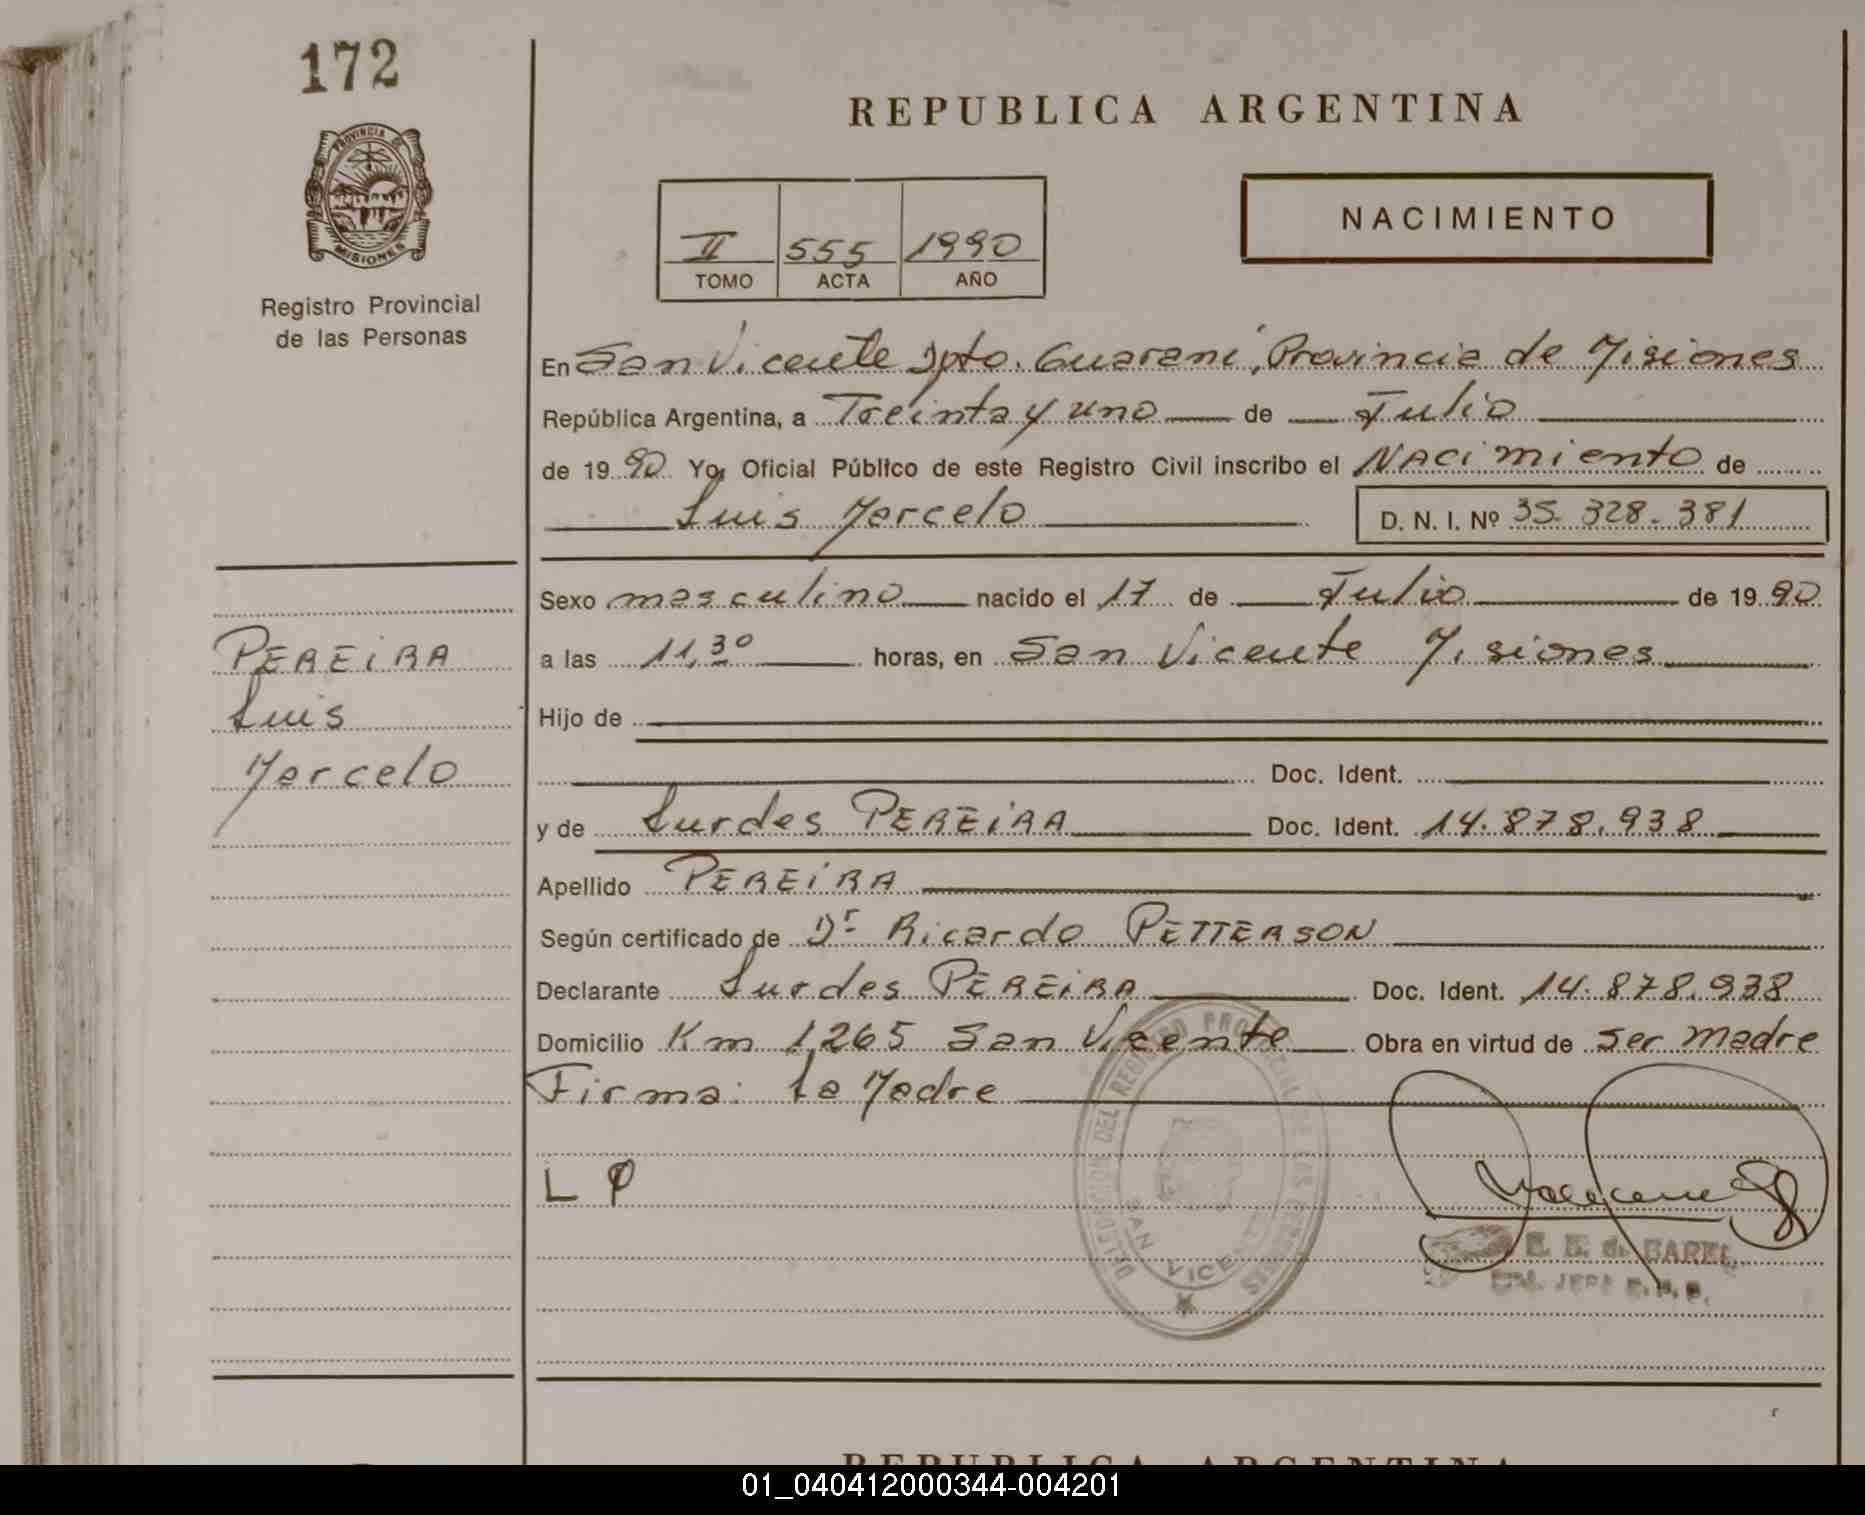 172
PROVINCIA DE
MISIONES
Registro Provincial
de las Personas
REPUBLICA ARGENTINA
NACIMIENTO
II 555 1990
TOMO ACTA AÑO
En San Vicente Dpto. Guaraní, Provincia de Misiones
República Argentina, a Treinta y uno de Julio
de 1990 Yo, Oficial Público de este Registro Civil inscribo el Nacimiento de
Luis Marcelo D. N. I. Nº 35.328.381
Sexo masculino nacido el 17 de Julio de 1990
a las 11,30 horas, en San Vicente Misiones
Hijo de
Doc. Ident.
y de Lurdes PEREIRA Doc. Ident. 14.878.938
Apellido PEREIRA
Según certificado de Dr Ricardo PETTERSON
Declarante Lurdes PEREIRA Doc. Ident. 14.878.938
Domicilio Km 1.265 San Vicente Obra en virtud de ser madre
Firma: La Madre
L P
PEREIRA
Luis
Marcelo
DELEGACION DEL REGISTRO PROVINCIAL DE LAS PERSONAS
SAN VICENTE
REPUBLICA ARGENTINA
01_040412000344-004201